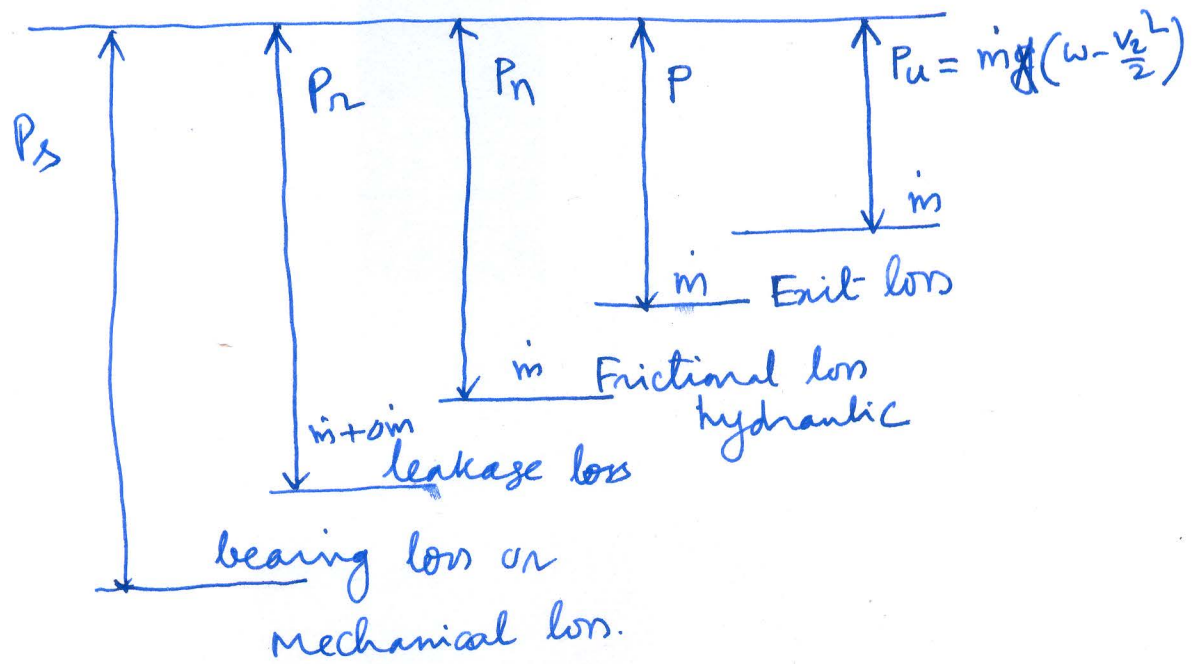 Ps
Pr
Pn
P
Pu = ṁ(w - V₂²/2)
ṁ
ṁ
Exit loss
ṁ
Frictional loss
hydraulic
ṁ+Δṁ
leakage loss
bearing loss or
Mechanical loss.